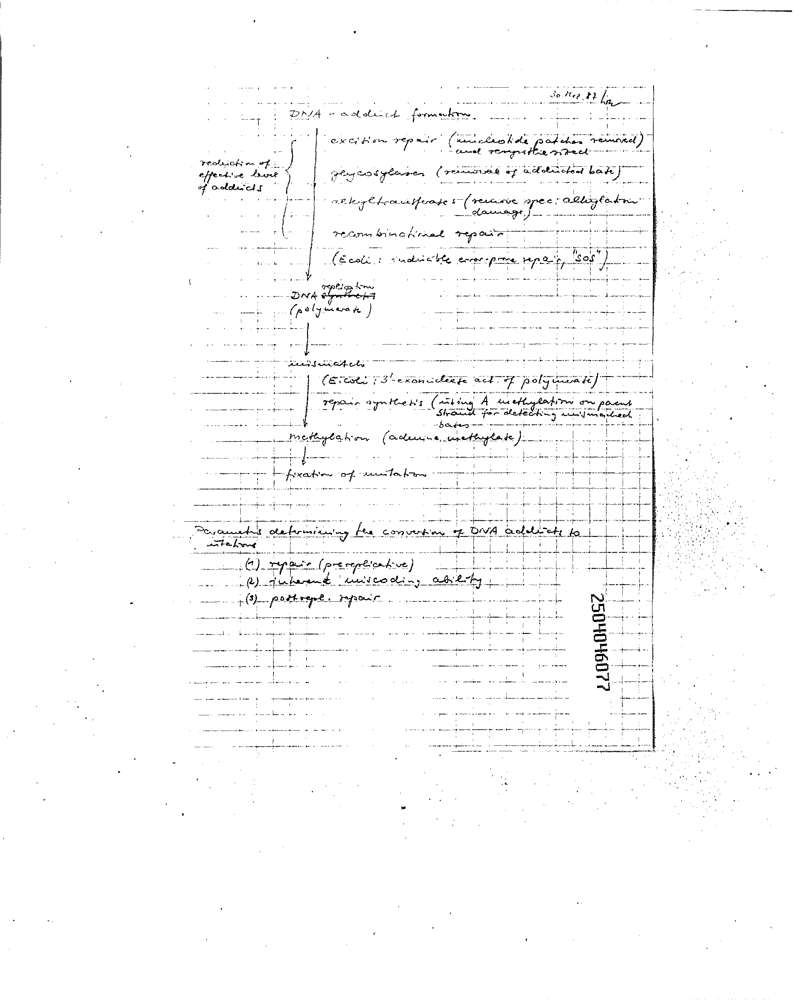 30 87
DNA - adduct formation
excition repair (nucleotide patches removed)
and resynthesized
reduction of
effective level
of adducts
glycosylases (removal of adducted base)
alkyltransferases (remove spec. alkylation
damage)
recombinational repair
(E.coli: inducible error-prone repair, "SOS")
replication
DNA synthesis
(polymerase)
mismatch
(E.coli: 3'-exonuclease act. of polymerase)
repair synthetis (using A methylation on parent
strand for detecting mismatched
bases
methylation (adenine methylase)
fixation of mutation
Parameters determining the convertion of DNA adducts to
mutations
(1) repair (prereplicative)
(2) inherent miscoding ability
(3) postrepl. repair
2504046077